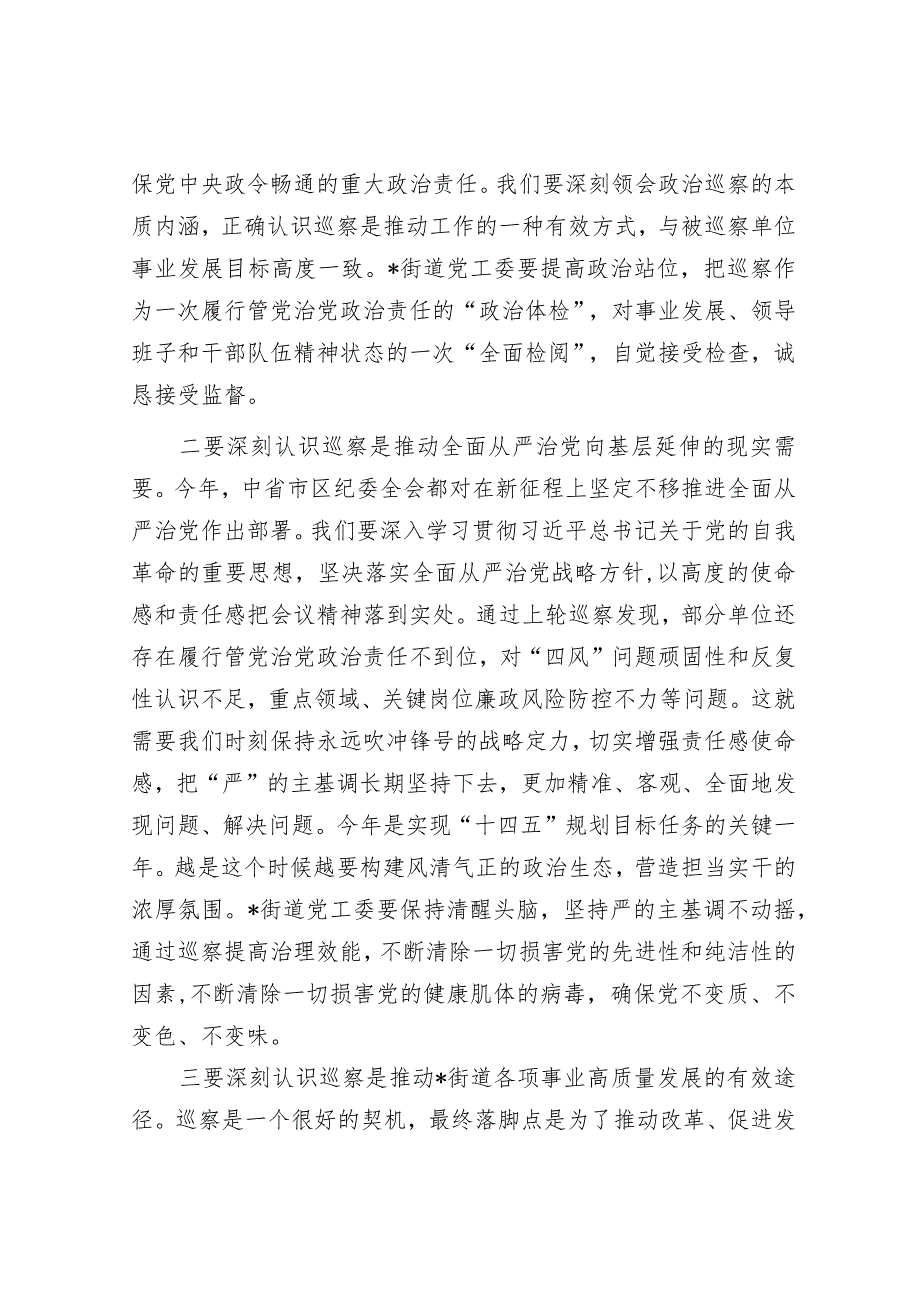 保党中央政令畅通的重大政治责任。我们要深刻领会政治巡察的本
质内涵，正确认识巡察是推动工作的一种有效方式，与被巡察单位
事业发展目标高度一致。*街道党工委要提高政治站位，把巡察作
为一次履行管党治党政治责任的“政治体检”，对事业发展、领导
班子和干部队伍精神状态的一次“全面检阅”，自觉接受检查，诚
恳接受监督。
二要深刻认识巡察是推动全面从严治党向基层延伸的现实需
要。今年，中省市区纪委全会都对在新征程上坚定不移推进全面从
严治党作出部署。我们要深入学习贯彻习近平总书记关于党的自我
革命的重要思想，坚决落实全面从严治党战略方针,以高度的使命
感和责任感把会议精神落到实处。通过上轮巡察发现，部分单位还
存在履行管党治党政治责任不到位，对“四风”问题顽固性和反复
性认识不足，重点领域、关键岗位廉政风险防控不力等问题。这就
需要我们时刻保持永远吹冲锋号的战略定力，切实增强责任感使命
感，把“严”的主基调长期坚持下去，更加精准、客观、全面地发
现问题、解决问题。今年是实现“十四五”规划目标任务的关键一
年。越是这个时候越要构建风清气正的政治生态，营造担当实干的
浓厚氛围。*街道党工委要保持清醒头脑，坚持严的主基调不动摇，
通过巡察提高治理效能，不断清除一切损害党的先进性和纯洁性的
因素,不断清除一切损害党的健康肌体的病毒，确保党不变质、不
变色、不变味。
三要深刻认识巡察是推动*街道各项事业高质量发展的有效途
径。巡察是一个很好的契机，最终落脚点是为了推动改革、促进发